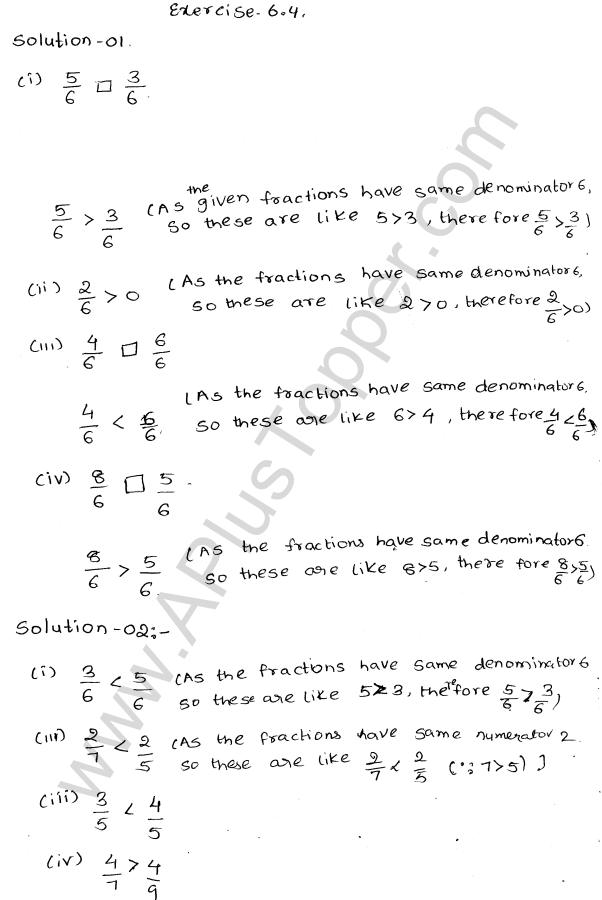 Exercise-6.4.
Solution-01.
(i) 5/6 □ 3/6.
5/6 > 3/6 (As the given fractions have same denominator 6,
so these are like 5>3, there fore 5/6 > 3/6)
(ii) 2/6 > 0 (As the fractions have same denominator 6,
so these are like 2>0, therefore 2/6 >0)
(iii) 4/6 □ 6/6
4/6 < 6/6. (As the fractions have same denominator 6.
so these are like 6>4, there fore 4/6 < 6/6)
(iv) 8/6 □ 5/6.
8/6 > 5/6. (As the fractions have same denominator 6.
so these are like 8>5, there fore 8/6 > 5/6)
Solution-02:-
(i) 3/6 < 5/6 (As the fractions have same denominator 6
so these are like 5>3, therefore 5/6 > 3/6)
(iii) 2/7 < 2/5 (As the fractions have same numerator 2.
so these are like 2/7 < 2/5 (∵ 7>5) ]
(iii) 3/5 < 4/5
(iv) 4/7 > 4/9
www.APlusTopper.com